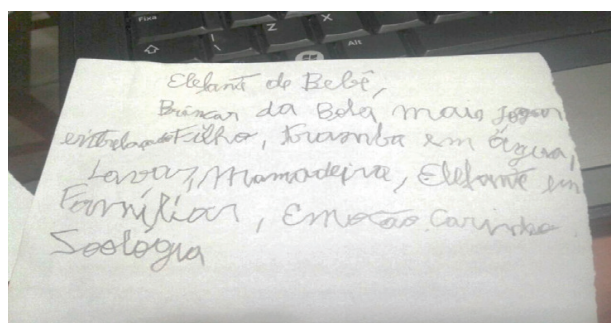 Fina
Z X
Alt
Elefant de Bebê,
Brincar da Bola, mais Jogar
Filho, tromba em água,
Lavar, Mamadeira, Elefant em
Famíliar, Emoção. Carinho.
Soologia